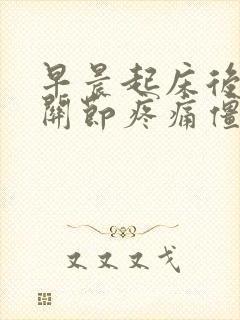 早晨起床後
關節疼痛僵
又又又戈